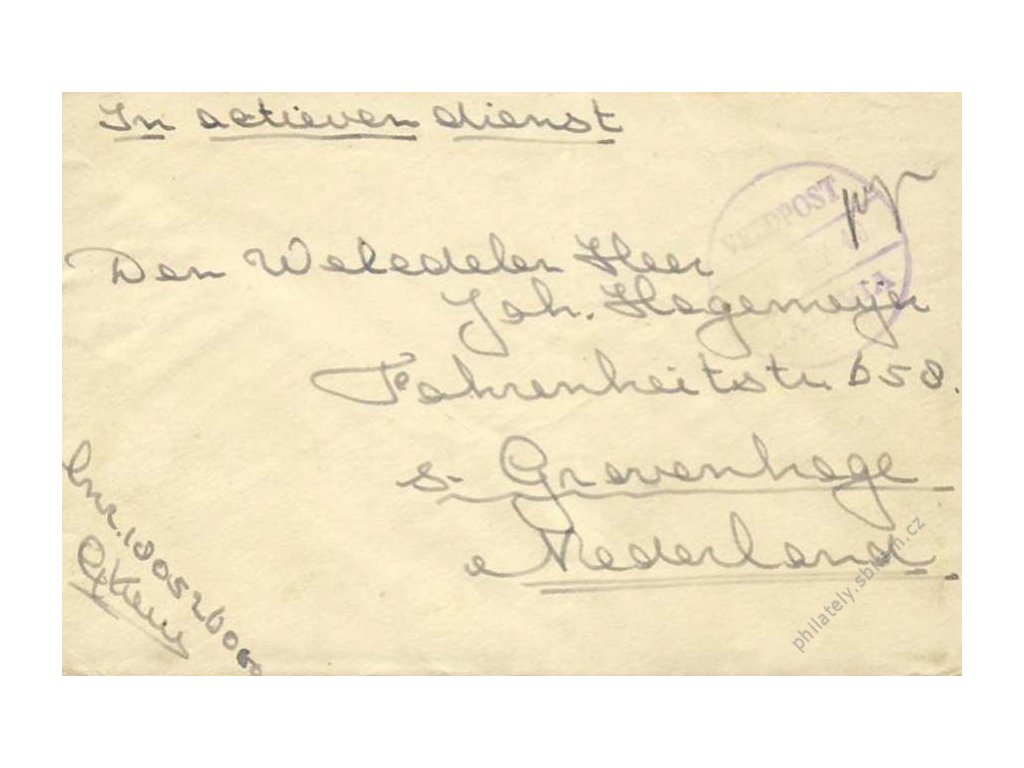 In actieven dienst
VELDPOST
Den Weledelen Heer
Joh. Hagemeyer
Fahrenheitstr. 658.
s-Gravenhage.
Nederland.
philately.sbram.cz